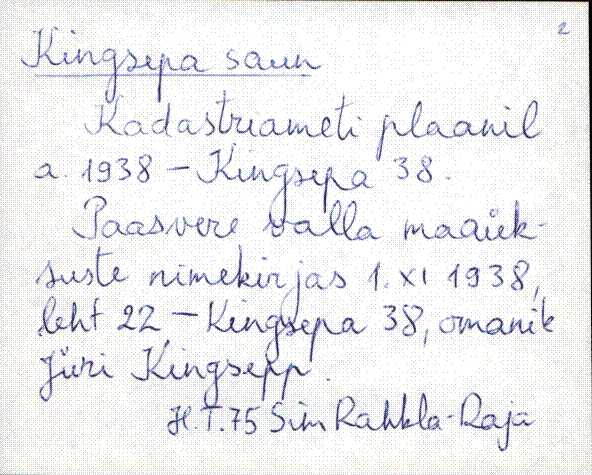 2
Kingsepa saun
Kadastriameti plaanil
a. 1938 – Kingsepa 38.
Paasvere valla maaük-
suste nimekirjas 1. XI 1938,
leht 22 – Kingsepa 38, omanik
Jüri Kingsepp.
H.T. 75 Sim Rahkla-Raja